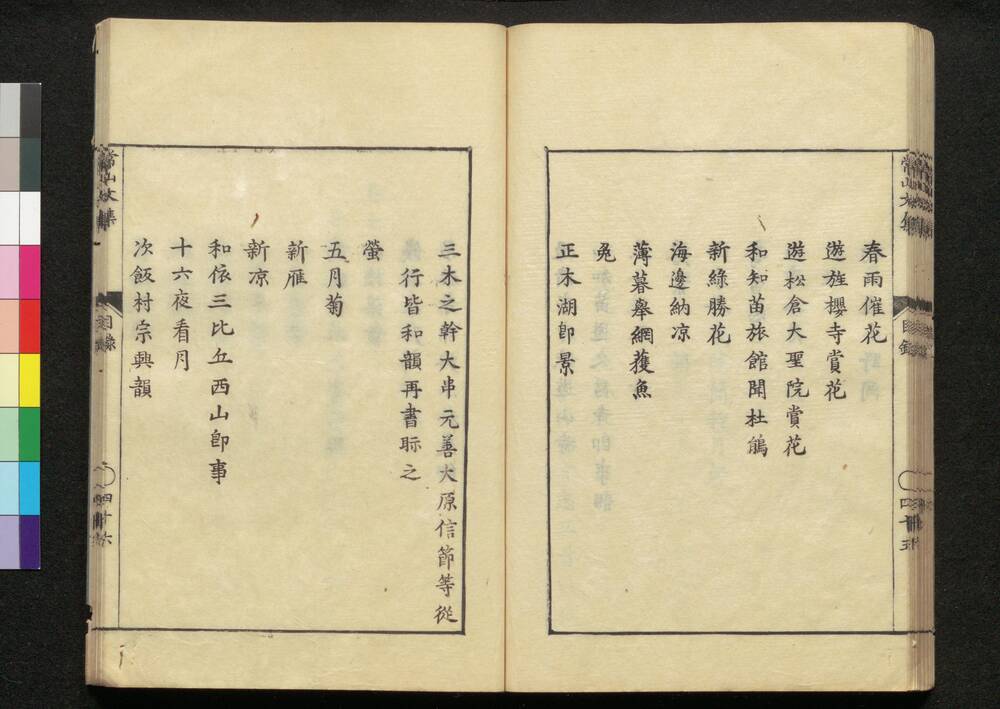 春雨催花
遊旌櫻寺賞花
遊松倉大聖院賞花
和知苗旅館聞杜鵑
新綠勝花
海邊納凉
薄暮舉網獲魚
兔
正木湖卽景
常山文集
目錄
三木之幹大串元善大原信節等從
行皆和韻再書眎之
螢
五月菊
新雁
新凉
和依三比丘西山卽事
十六夜看月
次飯村宗興韻
常山文集
目錄
四十六